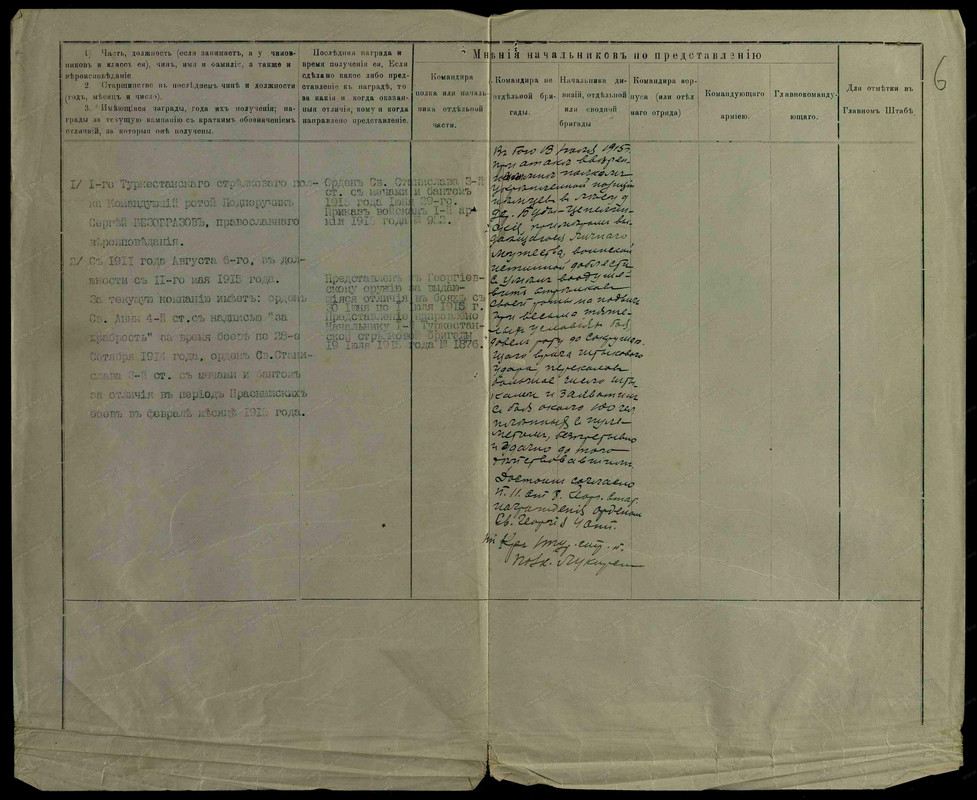 6
1) Часть, должность (если занимаетъ, а у чинов-
никовъ и классъ ея), чинъ, имя и фамилія, а также и
вѣроисповѣданіе
2. Старшинство въ послѣднемъ чинѣ и должности
(годъ, мѣсяцъ и число).
3. Имѣющіяся награды, года ихъ полученія; на-
грады за текущую кампанію съ краткимъ обозначеніемъ
отличій, за которыя онѣ получены.
Послѣдняя награда и
время полученія ея. Если
сдѣлано какое либо пред-
ставленіе къ наградѣ, то
за какія и когда оказан-
ныя отличія, кому и когда
направлено представленіе.
Мнѣнія начальниковъ по представленію
Командира
полка или началь-
ника отдѣльной
части.
Командира не
отдѣльной бри-
гады.
Начальника ди-
визій, отдѣльной
или сводной
бригады
Командира кор-
пуса (или отдѣл
наго отряда)
Командующаго
арміею.
Главнокоманду-
ющаго.
Для отмѣтки въ
Главномъ Штабѣ
1/ 1-го Туркестанскаго стрѣлковаго пол-
ка Командующій ротой Подпоручикъ
Сергѣй БЕЗОБРАЗОВЪ, православнаго
вѣроисповѣданія.
2/ Съ 1911 года Августа 6-го, въ дол-
жности съ 11-го мая 1915 года.
За текущую компанію имѣетъ: орденъ
Св. Анны 4-й ст. съ надписью "за
храбрость" за время боевъ по 28-е
Октября 1914 года, орденъ Св. Стани-
слава 3-й ст. съ мечами и бантомъ
за отличія въ періодъ Праснышскихъ
боевъ въ февралѣ мѣсяцѣ 1915 года.
Орденъ Св. Станислава 3-й
ст. съ мечами и бантомъ
1915 года Іюня 29-го.
Приказъ войскамъ 1-й ар-
міи 1915 года №
Представленъ къ Георгіев-
скому оружію за выдаю-
щіяся отличія въ бояхъ съ
30 Іюня по 1 Іюля 1915 г.
Представленіе направлено
Начальнику 1-й Туркестан-
ской стрѣлковой бригады
19 Іюля 1915 года № 1876.
Въ бою 13 Іюля 1915 г.
при атакѣ ввѣрен-
полкомъ
укрѣпленной позиціи
нѣмцевъ въ лѣсу у
примѣромъ вы-
дающагося личнаго
мужества, воинской
доблести
своей роты на подвигъ
при весьма тяже-
лыхъ условіяхъ боя
довелъ роту до сокруши-
врага штыкового
удара, переколовъ
большое число шты-
ками и захвативъ
съ боя около 100 чел
плѣнныхъ съ пуле-
метомъ, безпрерывно
и удачно до того
дѣйствовавшимъ.
Достоинъ согласно
п. 11. ст 8. Геор. стат.
награжденія орденомъ
Св. Георгія 4 ст.